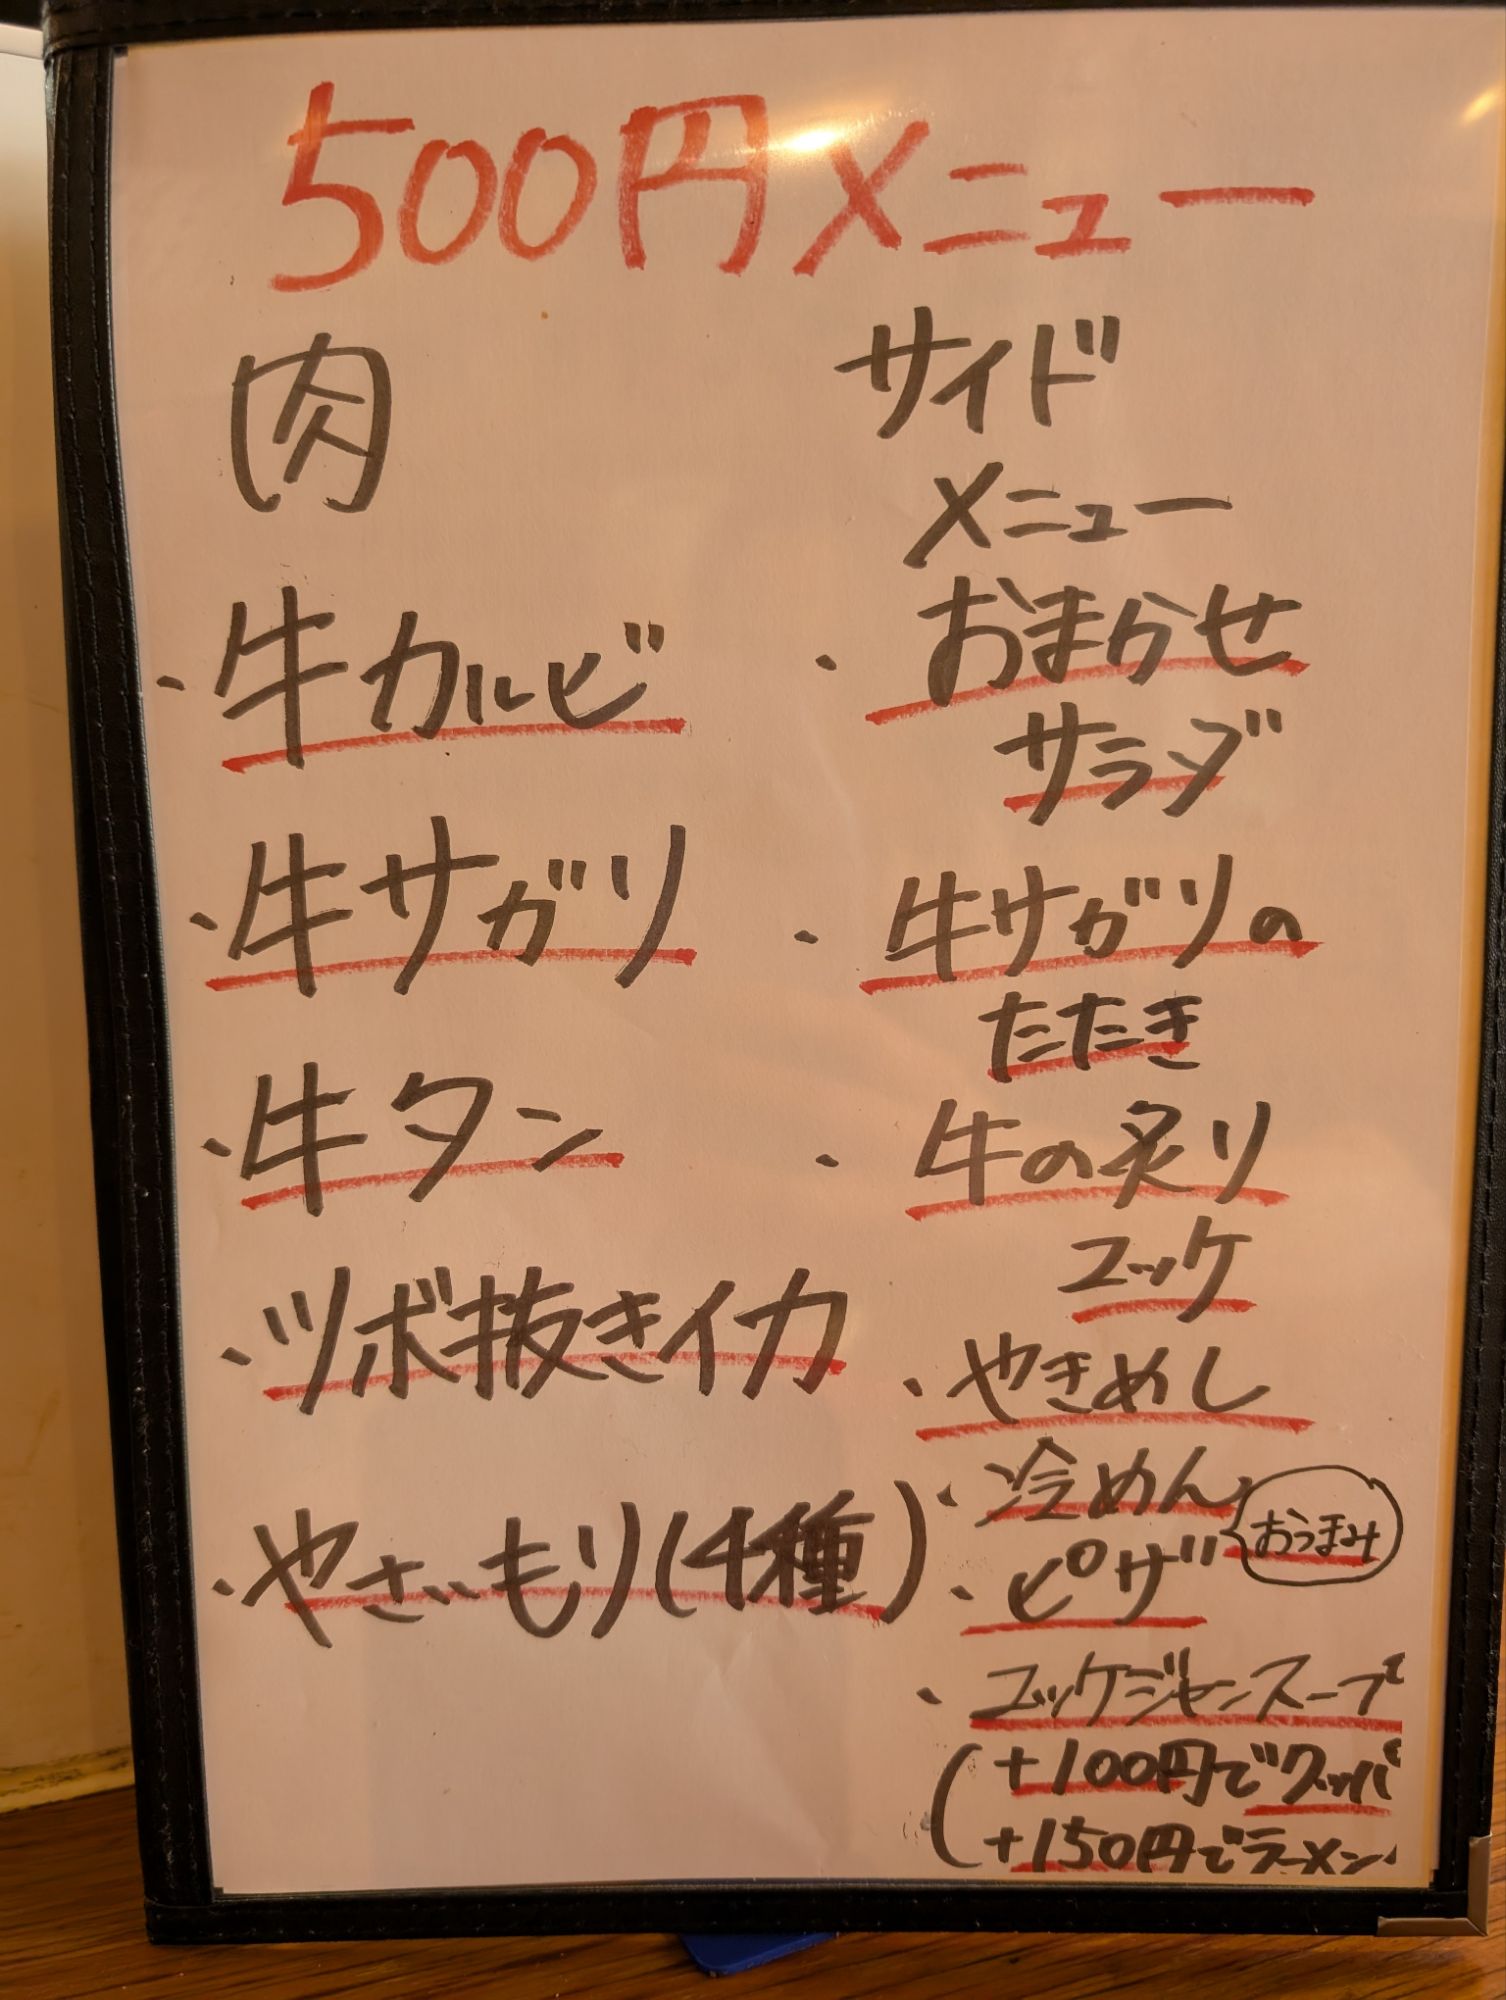 500円メニュー
肉
・牛カルビ
・牛サガリ
・牛タン
・ツボ抜きイカ
・やさいもり(4種)
サイド
メニュー
・おまかせ
サラダ
・牛サガリの
たたき
・牛の炙り
ユッケ
・やきめし
・冷めん
・ピザ
おつまみ
・ユッケジャンスープ
(+100円でクッパ
+150円でラーメン